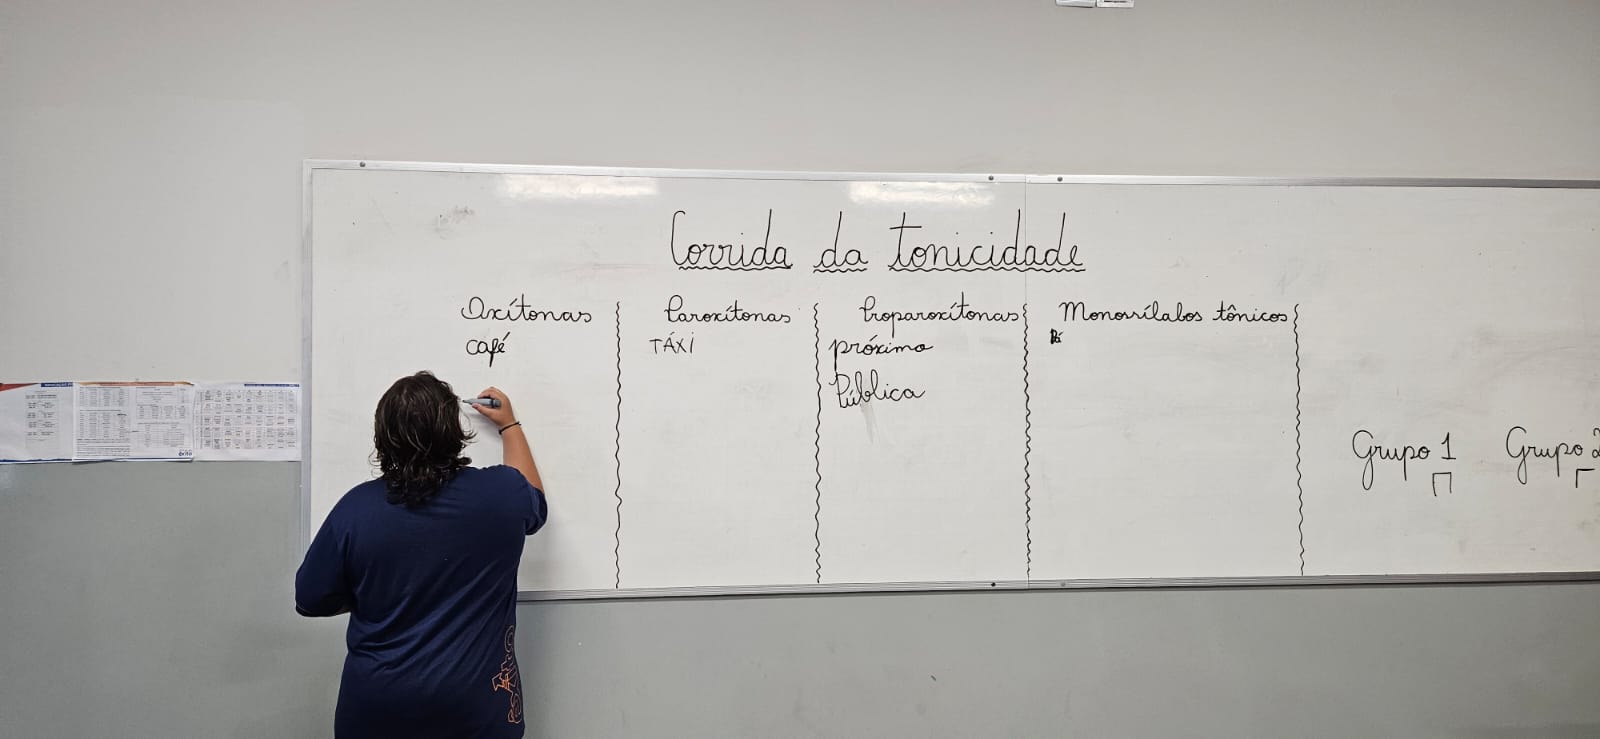 Corrida da tonicidade
Oxítonas Paroxítonas Proparoxítonas Monossílabos tônicos
café TÁXI próximo
Pública
Grupo 1 Grupo 2